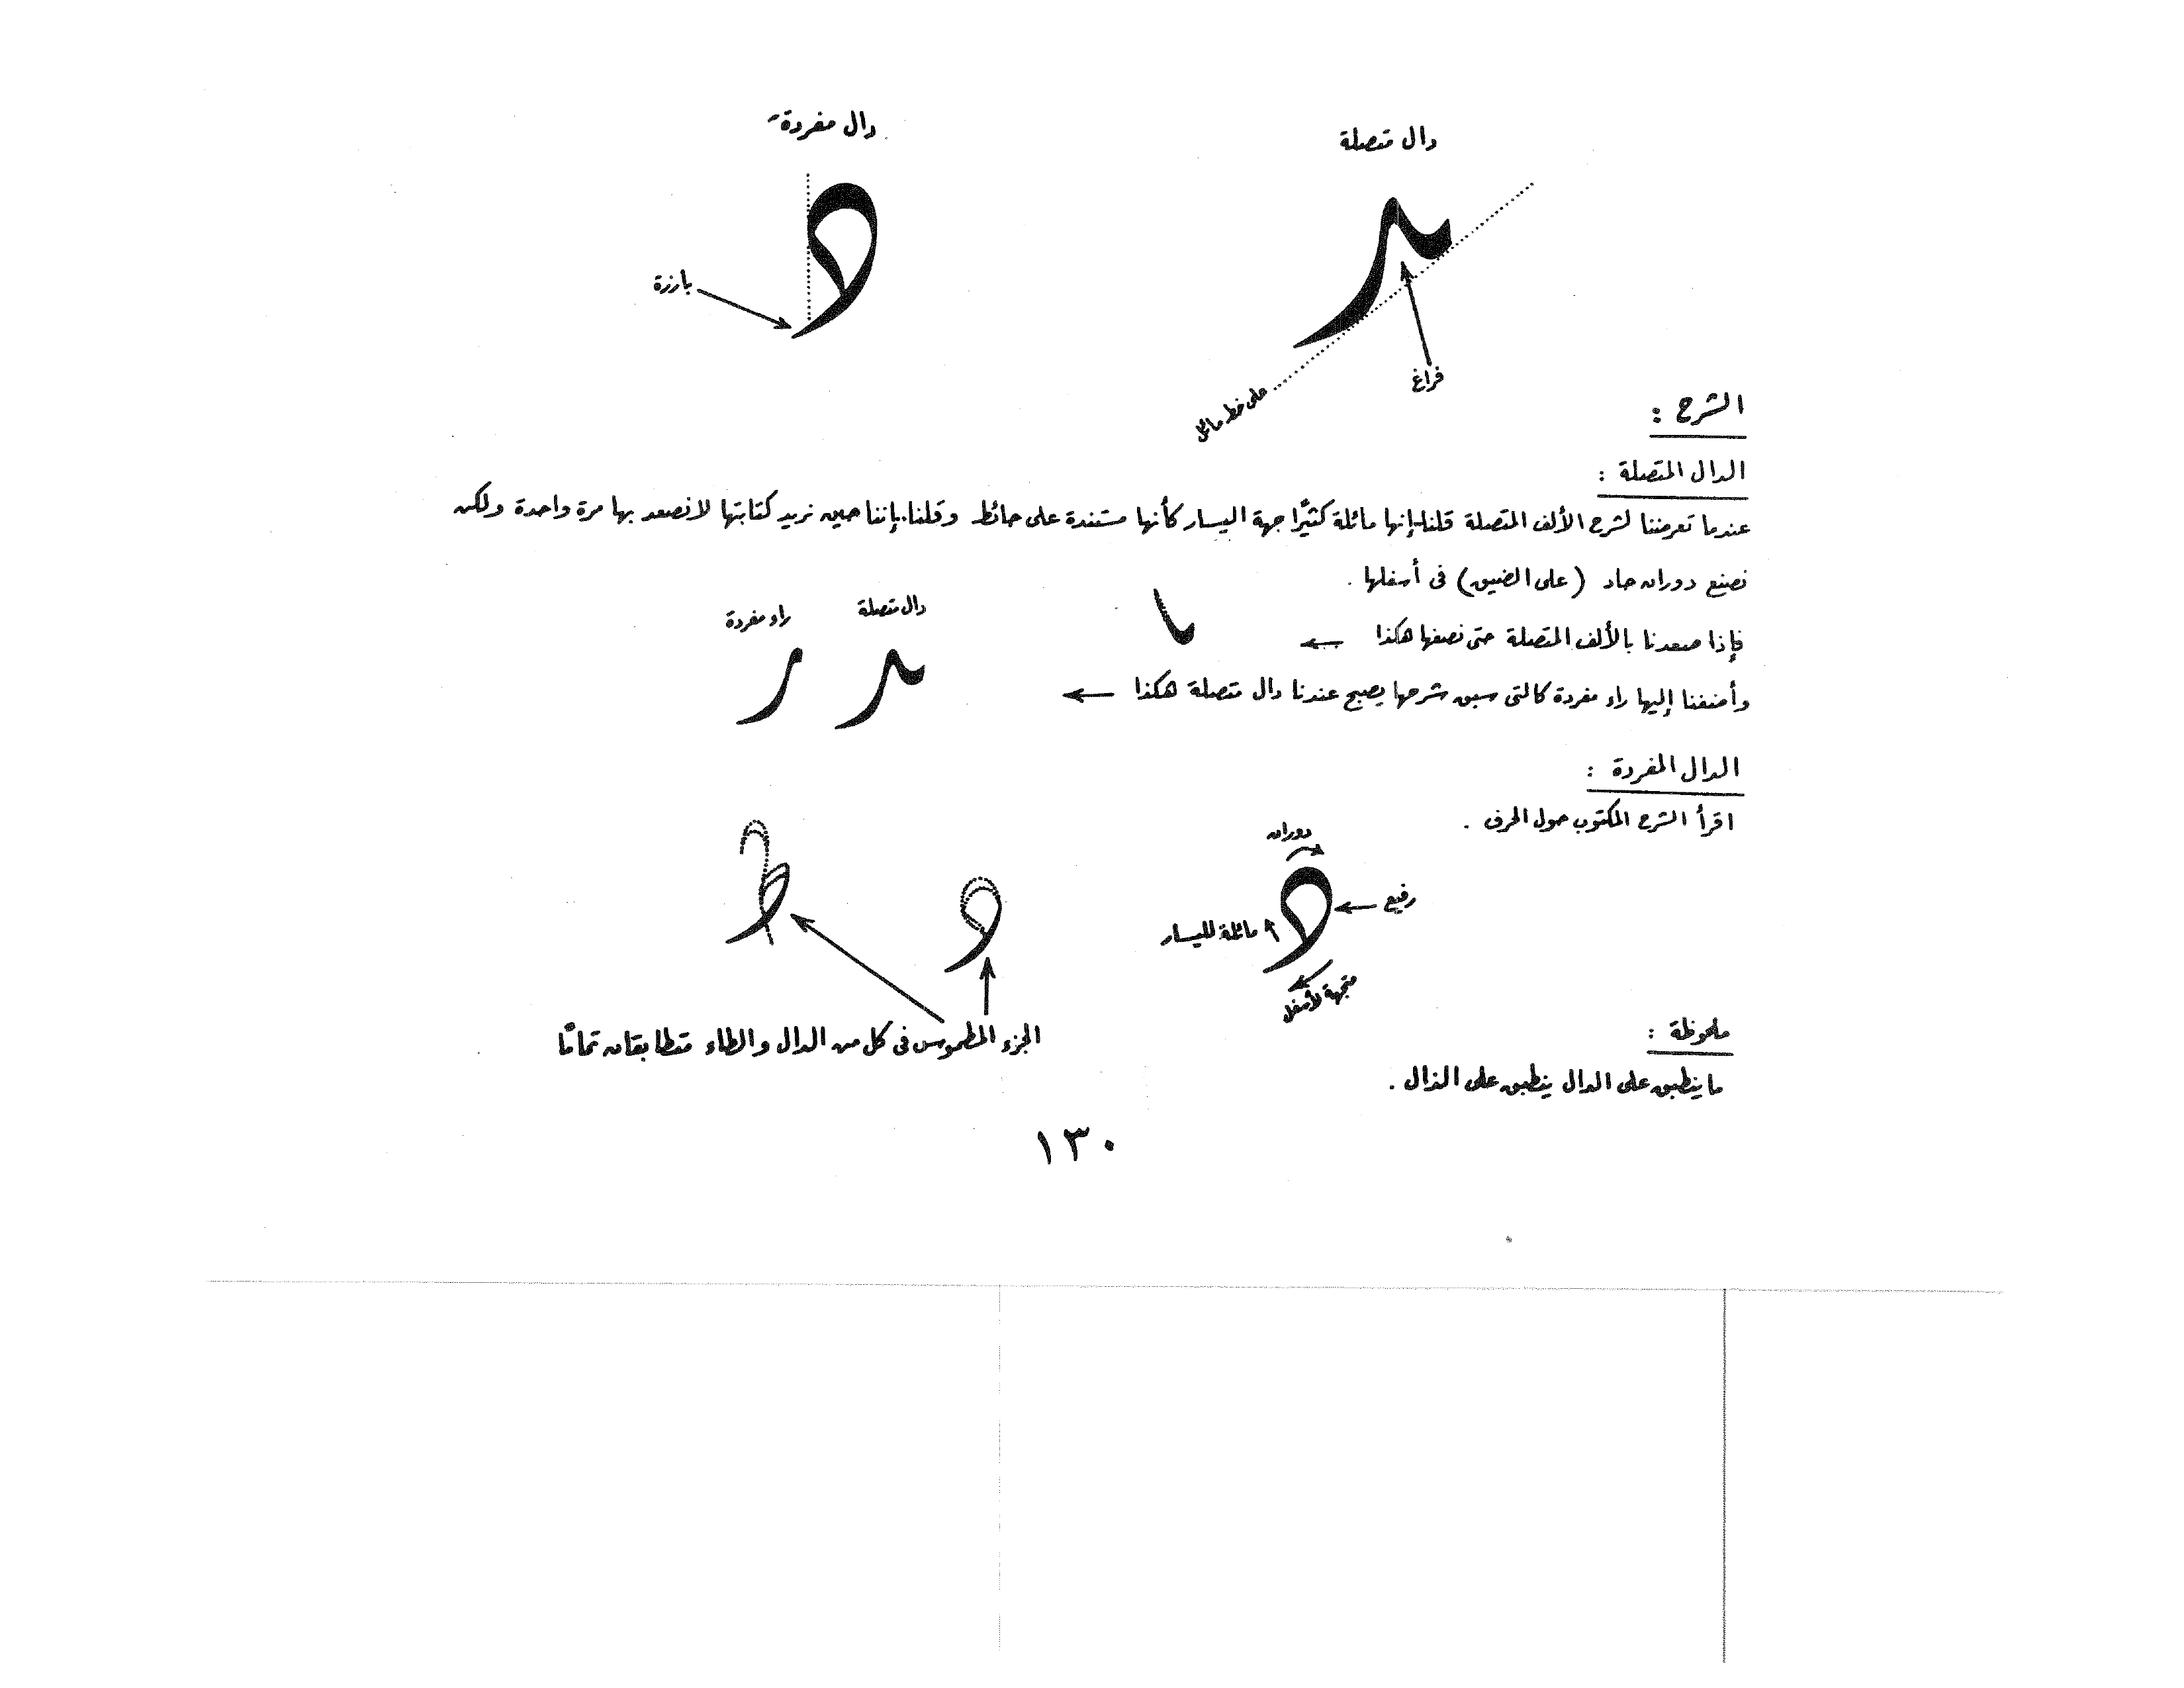 دال متصلة
دال مفردة
بارزة
فراغ
على خط مائل
الشرح :
الدال المتصلة :
عندما تعرضنا لشرح الألف المتصلة قلنا إنها مائلة كثيرًا جهة اليسار كأنها مستندة على حائط وقلنا بإننا حين نريد كتابتها لا نصعد بها مرة واحدة ولكن
نصنع دوران حاد (على الضيق) فى أسفلها .
فإذا صعدنا بالألف المتصلة حتى نصفها هكذا
دال متصلة
راء مفردة
وأضفنا إليها راء مفردة كالتى سبق شرحها يصبح عندنا دال متصلة هكذا
الدال المفردة :
اقرأ الشرح المكتوب حول الحرف .
دوران
رفيع
مائلة لليسار
متجهة لأسفل
الجزء المطموس فى كل من الدال والطاء متطابقان تمامًا
ملحوظة :
ما ينطبق على الدال ينطبق على الذال .
١٣٠